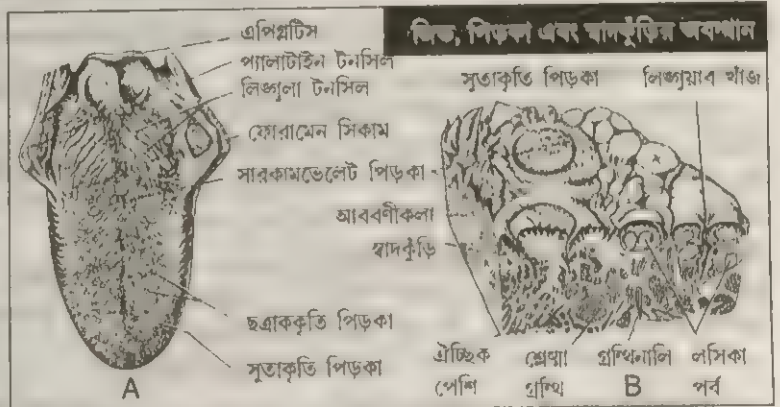 জিভ, পিড়কা এবং স্বাদকুঁড়ির অবস্থান
এপিগ্লটিস
প্যালাটাইন টনসিল
লিঙ্গুলা টনসিল
ফোরামেন সিকাম
সারকামভেলেট পিড়কা
আববণীকলা
স্বাদকুঁড়ি
ছত্রাককৃতি পিড়কা
সুতাকৃতি পিড়কা
A
সুতাকৃতি পিড়কা
লিঙ্গুয়াব খাঁজ
ঐচ্ছিক পেশি
শ্লেষ্মা গ্রন্থি
গ্রন্থিনালি
B
লসিকা পর্ব